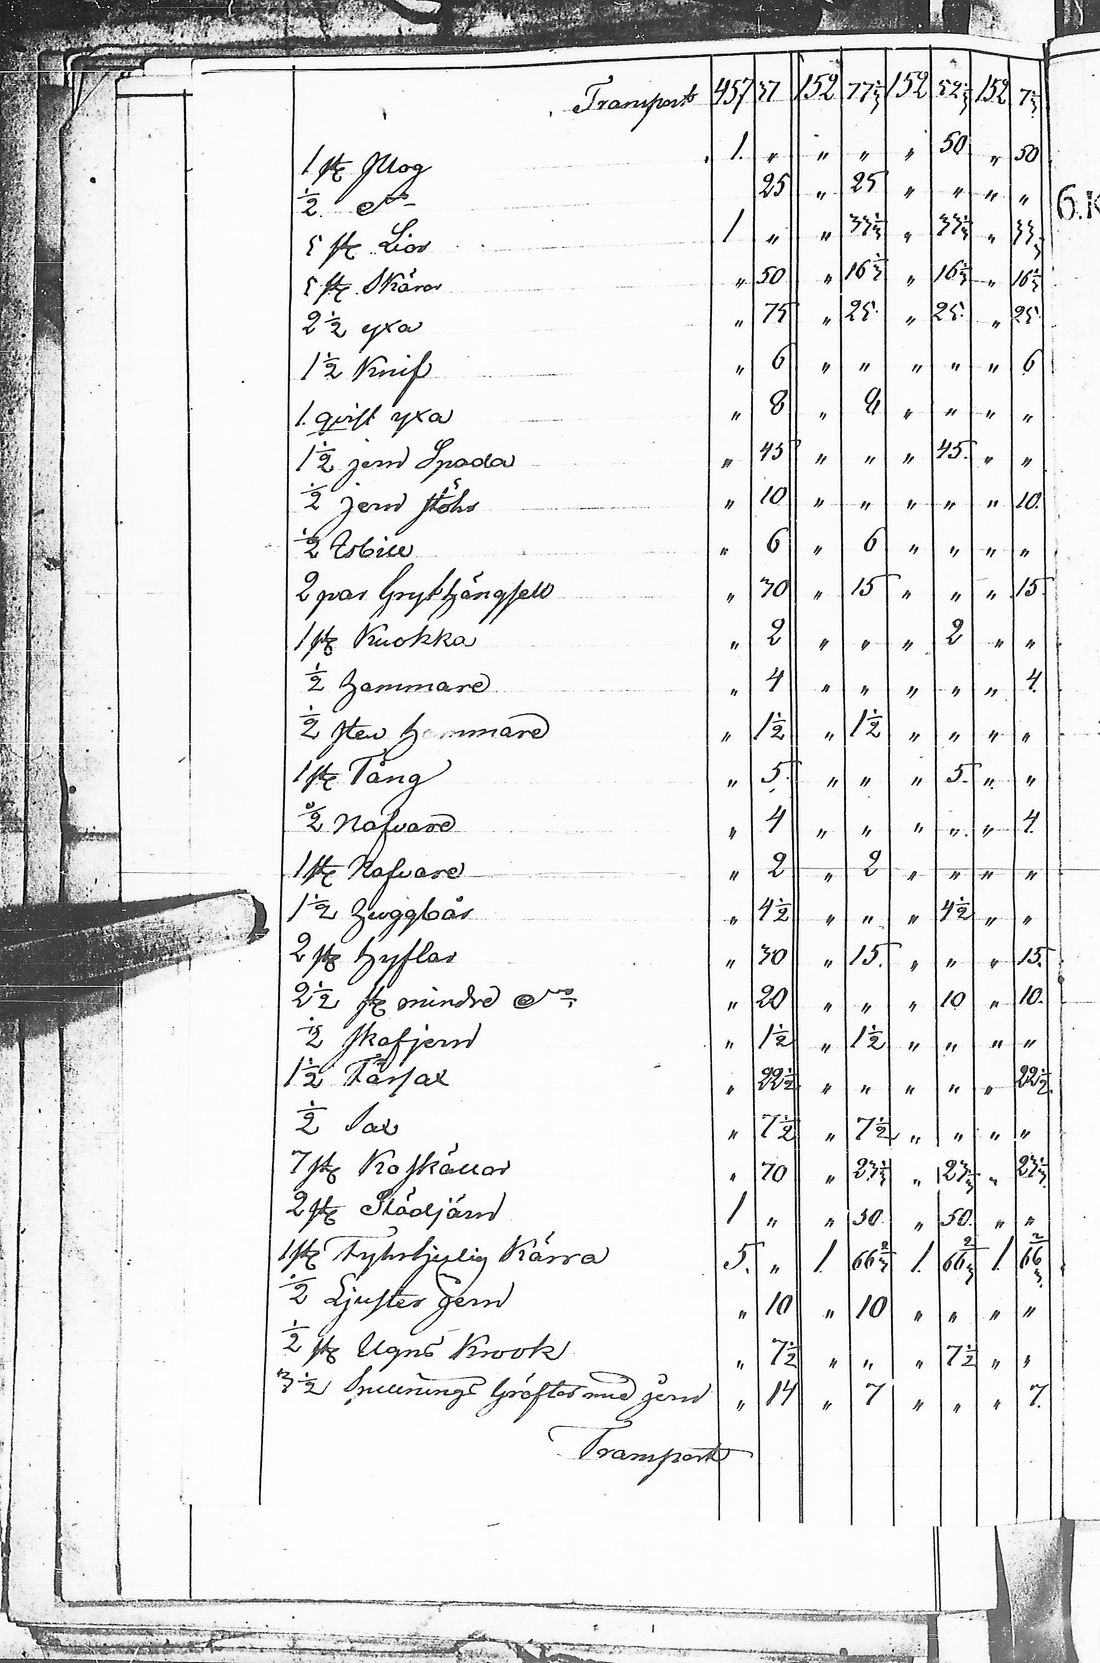 Transport 457 37 152 77½ 152 52½ 152 7½
1 st Plog 1. „ „ „ „ 50 „ 50
½ d:o 25 „ 25 „ „ „ „
5 st Liar 1 „ „ 33⅓ „ 33⅓ „ 33⅓
5 st Skäror „ 50 „ 16⅔ „ 16⅔ „ 16⅔
2 ½ yxa „ 75 „ 25 „ 25 „ 25
1 ½ Knif „ 6 „ „ „ „ „ 6
1 qvist yxa „ 8 „ 8 „ „ „ „
1 ½ jern Spada „ 45 „ „ „ 45 „ „
½ jern stöhr „ 10 „ „ „ „ „ 10
½ „ 6 „ 6 „ „ „ „
2 par Grythängsell „ 30 „ 15 „ „ „ 15
1 st Kuokka „ 2 „ „ „ 2 „ „
½ hammare „ 4 „ „ „ „ „ 4
½ sten hammare „ 1½ „ 1½ „ „ „ „
1 st Tång „ 5 „ „ „ 5 „ „
½ Nafvare „ 4 „ „ „ „ „ 4
1 st Nafvare „ 2 „ 2 „ „ „ „
1 ½ „ 4½ „ „ „ 4½ „ „
2 st hyflar „ 30 „ 15 „ „ „ 15
2 ½ st mindre d:o „ 20 „ „ „ 10 „ 10
½ skafjern „ 1½ „ 1½ „ „ „ „
1 ½ Fårsax „ 22½ „ „ „ „ „ 22½
½ Sax „ 7½ „ 7½ „ „ „ „
7 st Koskällor „ 70 „ 23⅓ „ 23⅓ „ 23⅓
2 st Städjärn 1 „ „ 50 „ 50 „ „
1 st Fyrhjulig Kärra 5 „ 1 66⅔ 1 66⅔ 1 66⅔
½ Ljuster Jern „ 10 „ 10 „ „ „ „
½ st Ugns Krook „ 7½ „ „ „ 7½ „ „
3 ½ med jern „ 14 „ 7 „ „ „ 7
Transport
6.K